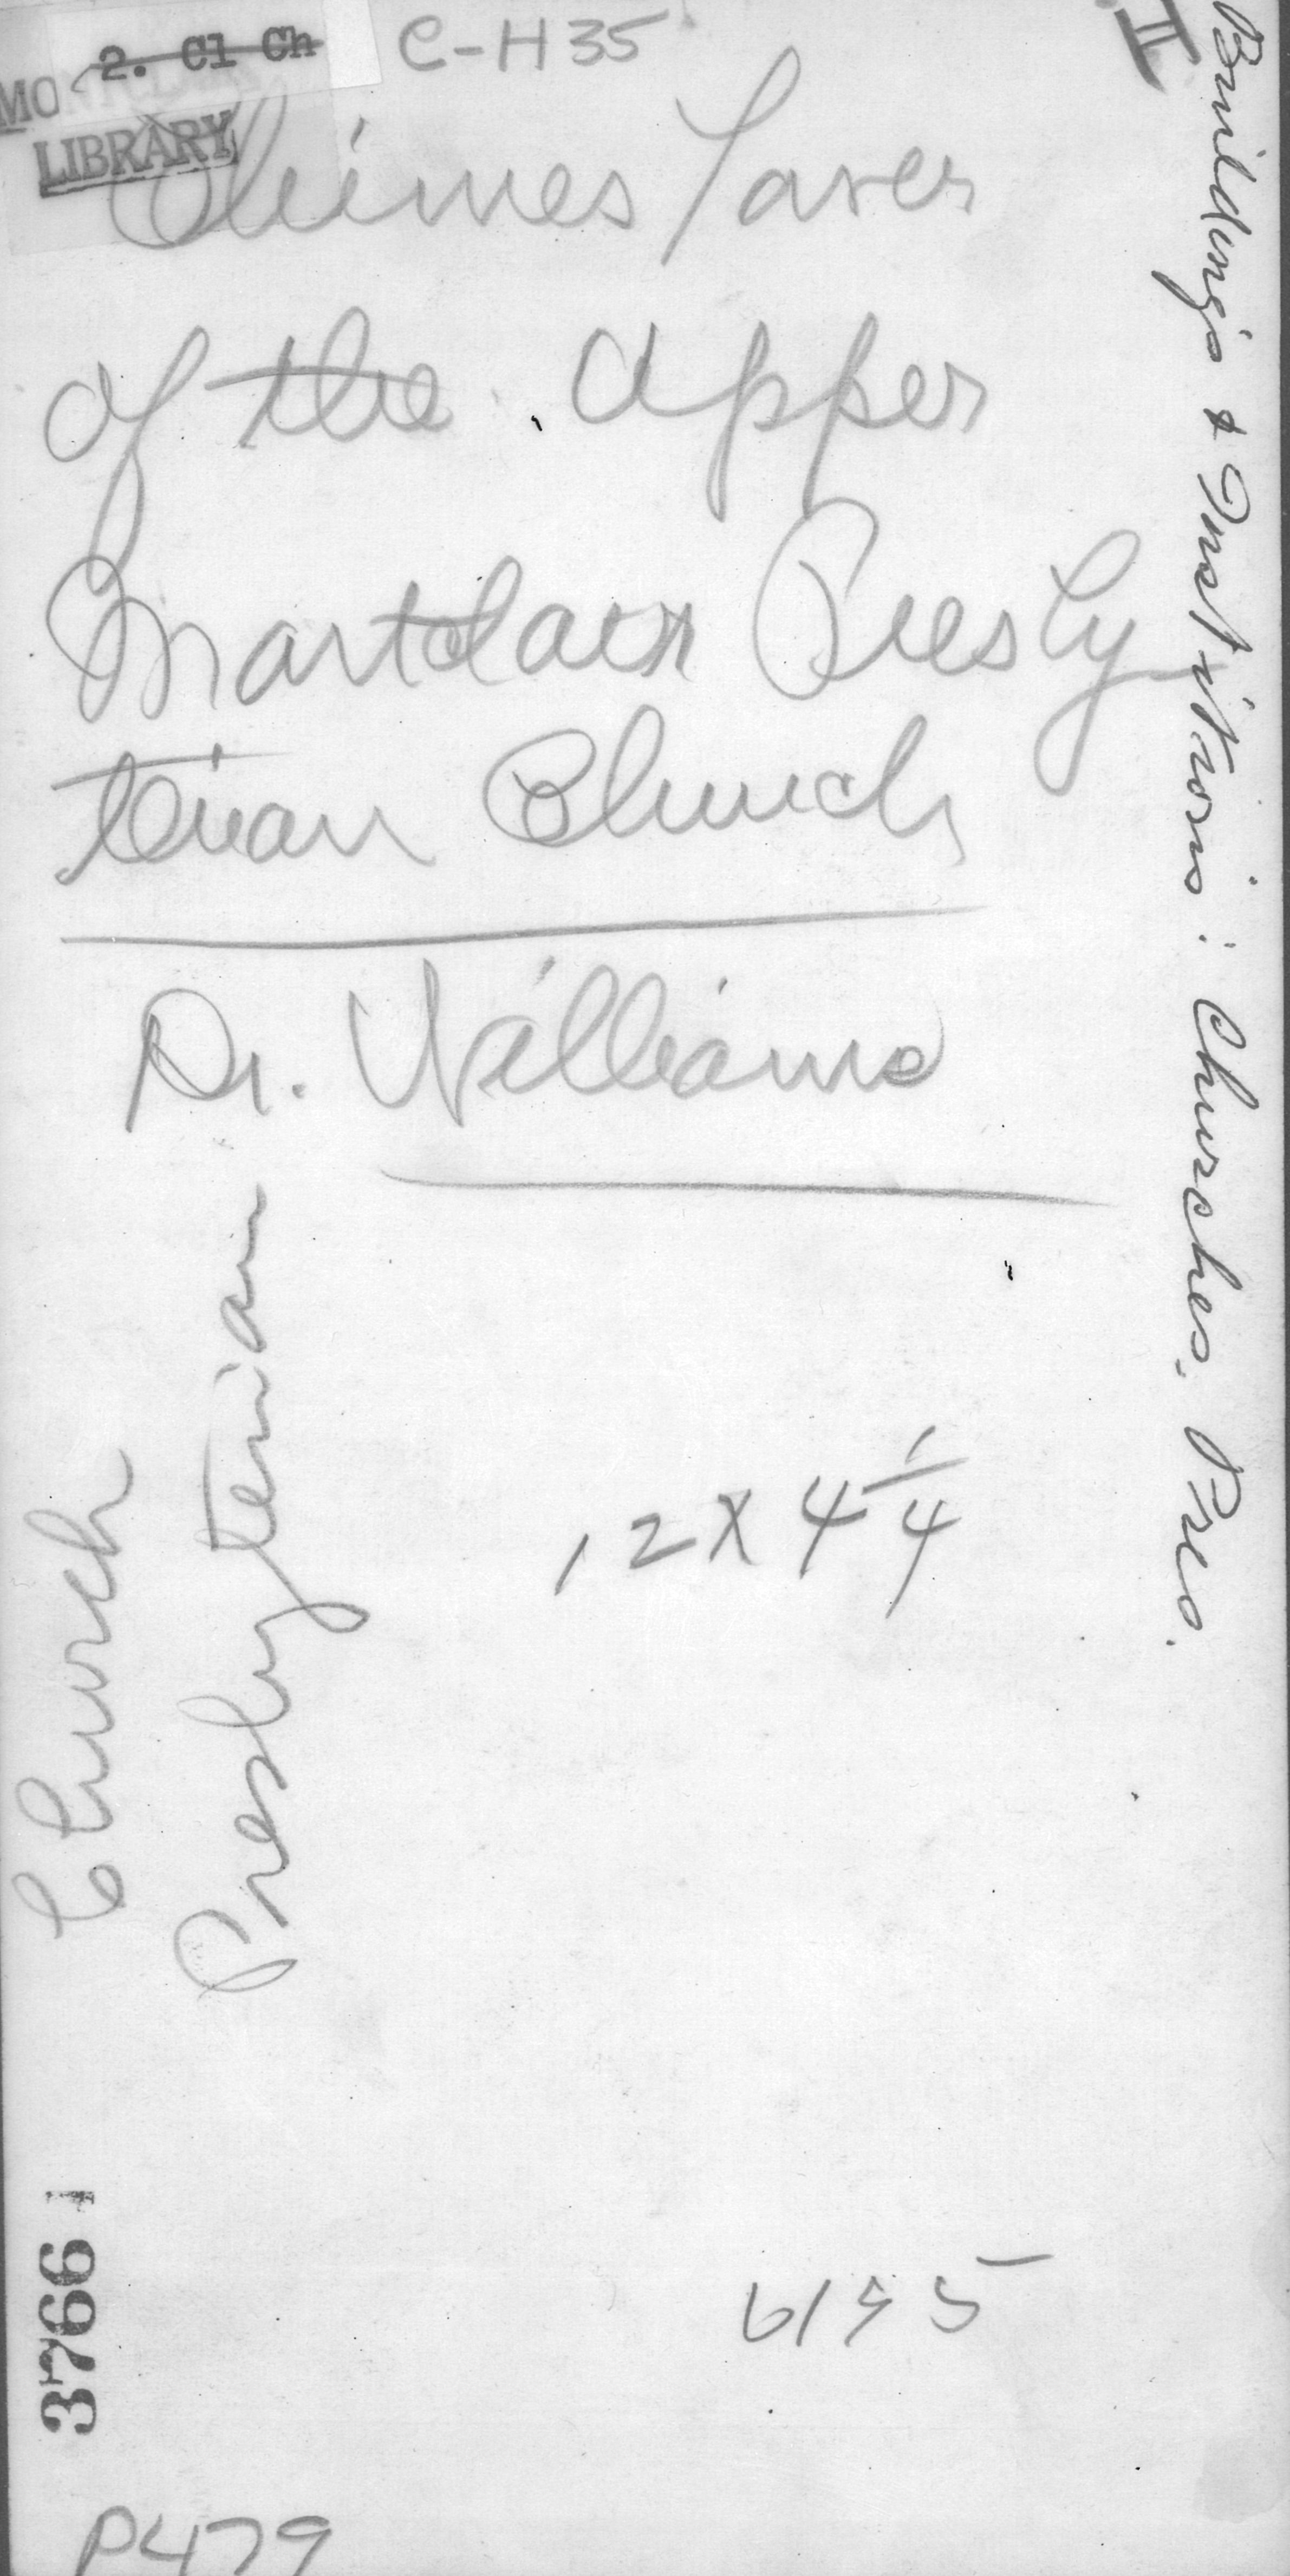 2. Cl Ch
C-H35
II
LIBRARY
Chimes Tower
of the Upper
Montclair Presby
terian Church
Dr. Williams
Buildings & Institutions: Churches. Pres.
Church
Presbyterian
12 X 4 1/4
3766
P479